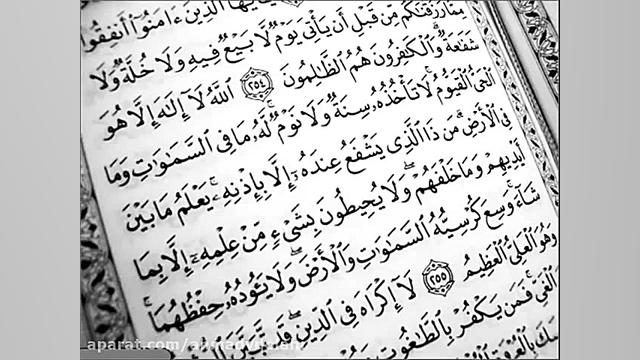 ٱلَّذِينَ ءَامَنُوٓاْ أَنفِقُواْ
مِمَّا رَزَقْنَٰكُم مِّن قَبْلِ أَن يَأْتِىَ يَوْمٌ لَّا بَيْعٌ فِيهِ وَلَا خُلَّةٌ وَلَا
شَفَٰعَةٌ ۗ وَٱلْكَٰفِرُونَ هُمُ ٱلظَّٰلِمُونَ ٢٥٤ ٱللَّهُ لَآ إِلَٰهَ إِلَّا هُوَ
ٱلْحَىُّ ٱلْقَيُّومُ ۚ لَا تَأْخُذُهُۥ سِنَةٌ وَلَا نَوْمٌ ۚ لَّهُۥ مَا فِى ٱلسَّمَٰوَٰتِ وَمَا
فِى ٱلْأَرْضِ ۗ مَن ذَا ٱلَّذِى يَشْفَعُ عِندَهُۥٓ إِلَّا بِإِذْنِهِۦ ۚ يَعْلَمُ مَا بَيْنَ
أَيْدِيهِمْ وَمَا خَلْفَهُمْ ۖ وَلَا يُحِيطُونَ بِشَىْءٍ مِّنْ عِلْمِهِۦٓ إِلَّا بِمَا
شَآءَ ۚ وَسِعَ كُرْسِيُّهُ ٱلسَّمَٰوَٰتِ وَٱلْأَرْضَ ۖ وَلَا يَـُٔودُهُۥ حِفْظُهُمَا ۚ
وَهُوَ ٱلْعَلِىُّ ٱلْعَظِيمُ ٢٥٥ لَآ إِكْرَاهَ فِى ٱلدِّينِ ۖ قَد تَّبَيَّنَ
ٱلْغَىِّ ۚ فَمَن يَكْفُرْ بِٱلطَّٰغُوتِ